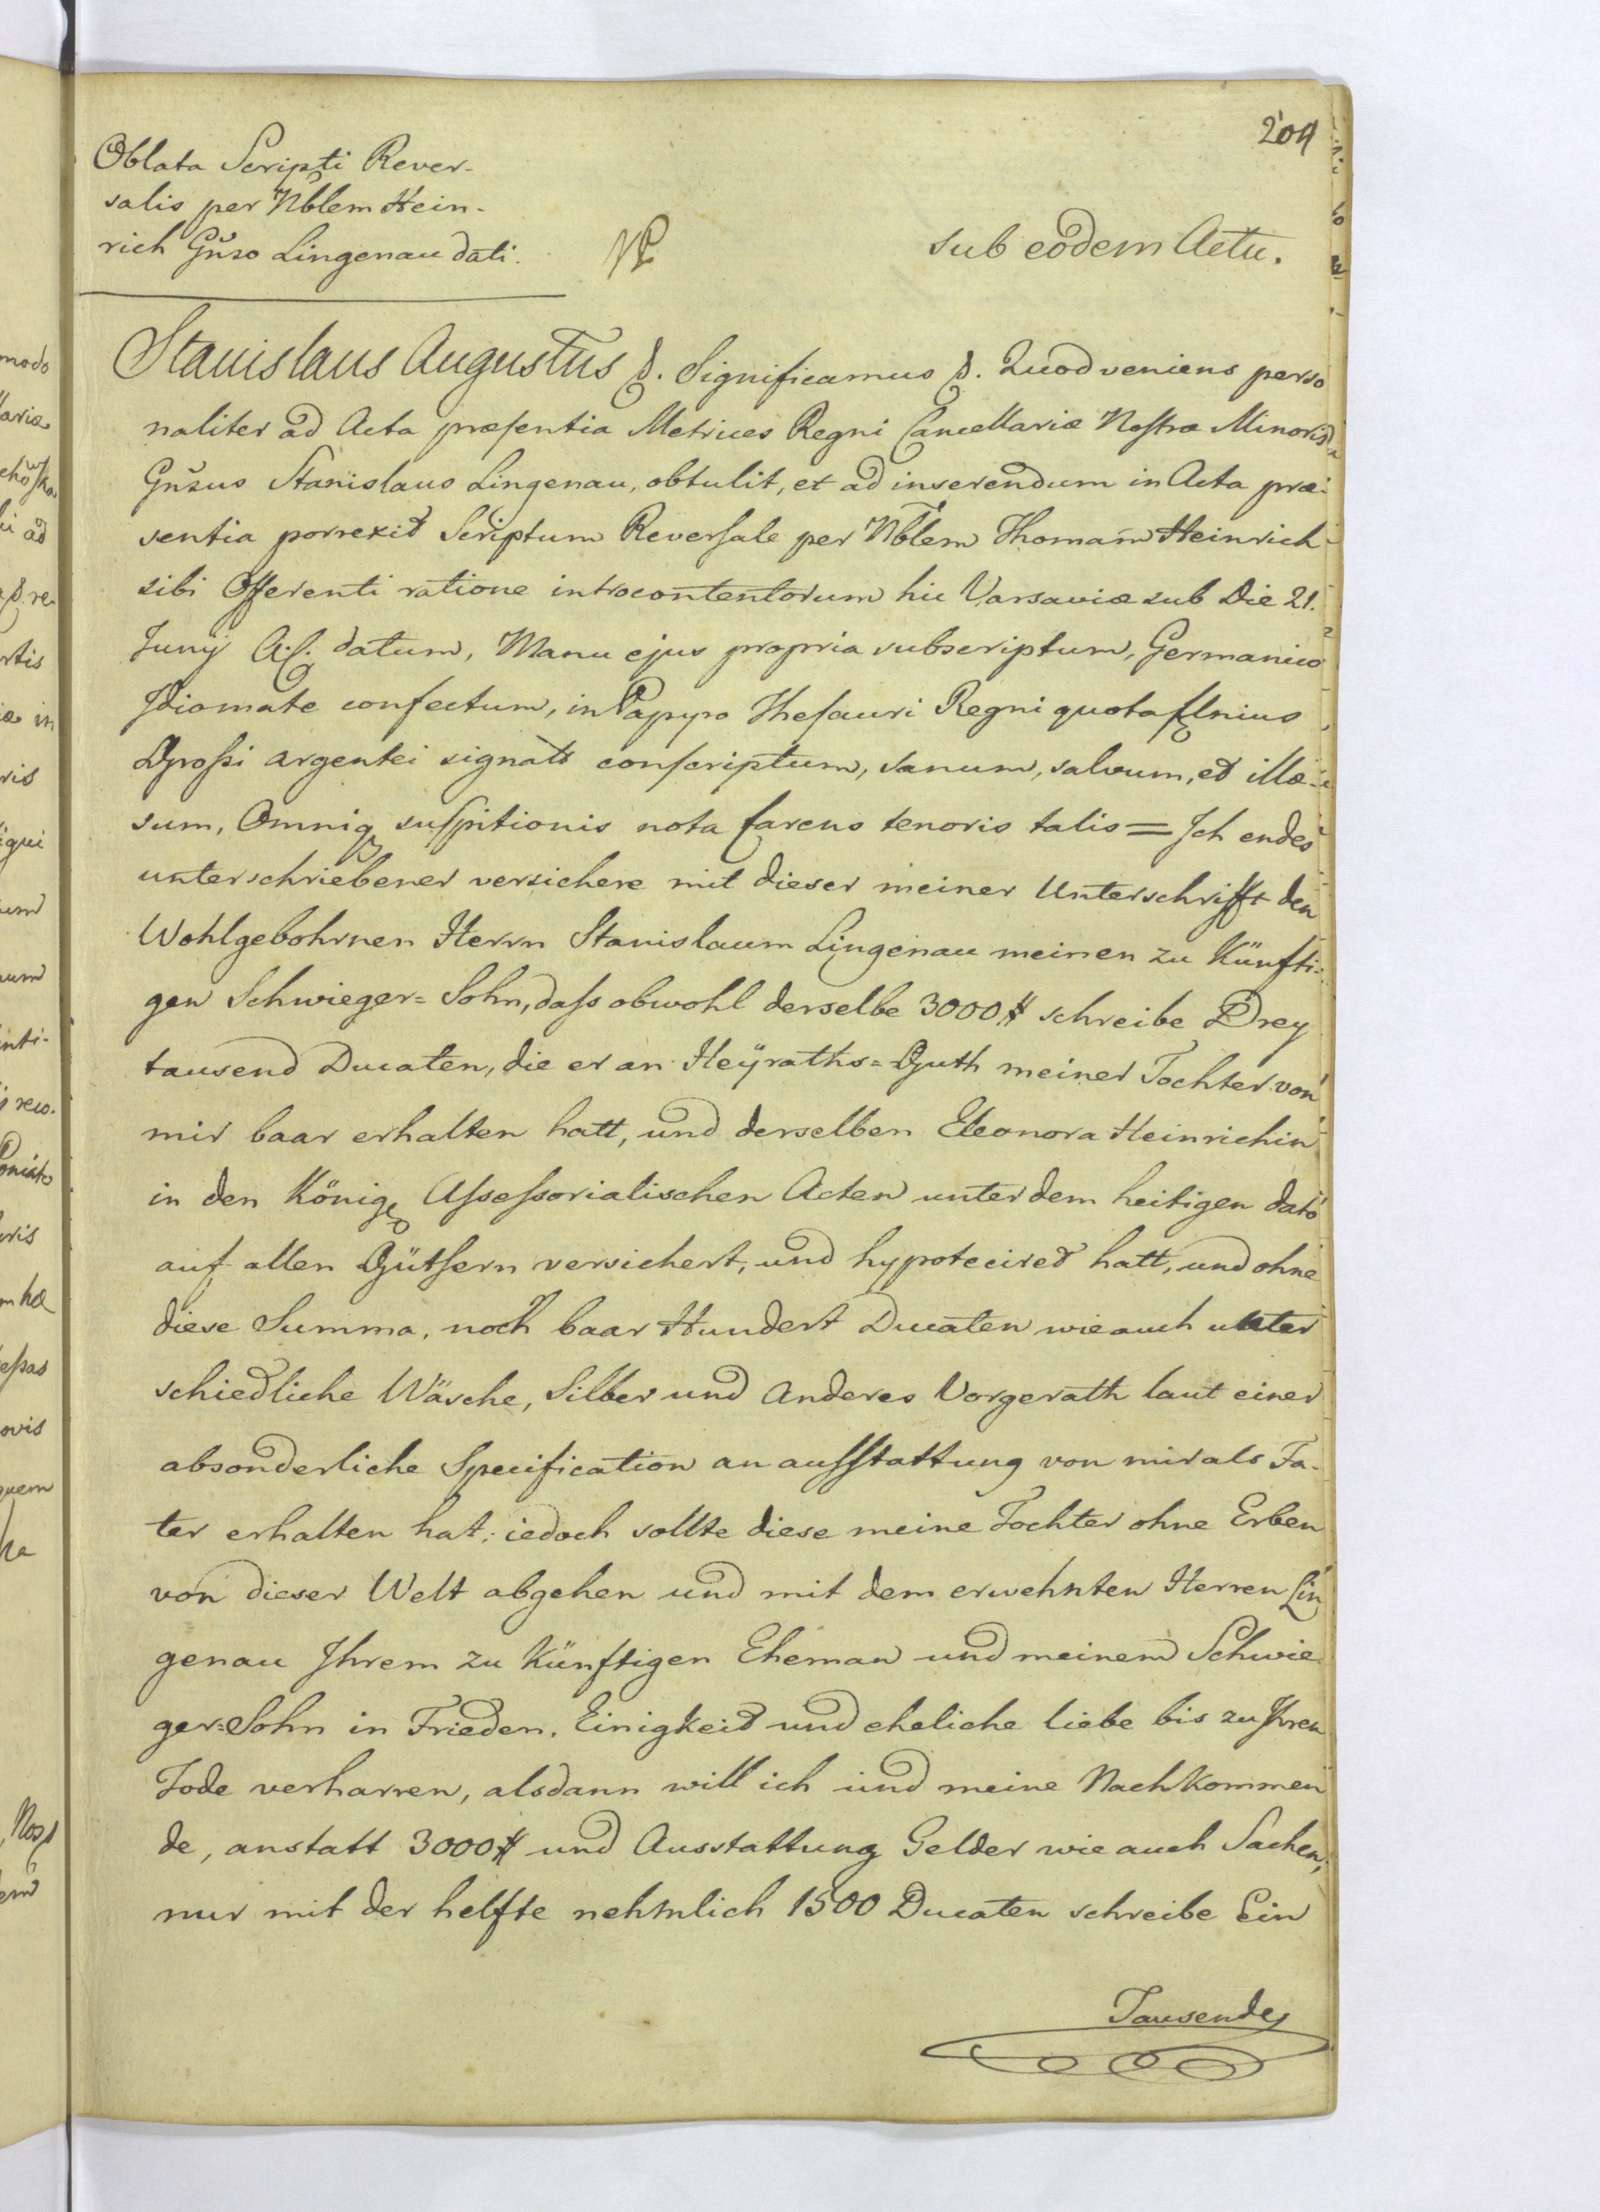 209
Oblata Scripti Rever-
salis per Nblem Hein-
rich Gnso Lingenau dati.
sub eodem Actu.
Stanislaus Augustus &. Significamus &. Quod veniens perso
naliter ad Acta præsentia Metrices Regni Cancellariæ Nostræ Minoris
Gnsus Stanislaus Lingenau, obtulit, et ad inserendum in Acta præ-
sentia porrexit Scriptum Reversale per Nblem Thomam Heinrich
sibi Offerenti ratione introcontentorum hic Varsaviæ sub Die 21.
Junÿ A.C. datum, Manu ejus propria subscriptum, Germanico
Idiomate confectum, in Papyro Thesauri Regni quota flnius
Grossi argentei signato conscriptum, sanum, salvum, et illæ-
sum, Omniq suspitionis nota carens tenoris talis = Ich endes
unterschriebener versichere mit dieser meiner Unterschrifft den
Wohlgebohrnen Herrn Stanislaum Lingenau meinen zu Künfti-
gen Schwieger= Sohn, dass obwohl derselbe 3000 # schreibe Drey
tausend Ducaten, die er an Heÿraths= Guth meiner Tochter von
mir baar erhalten hatt, und derselben Eleonora Heinrichin
in den König Assessorialischen Acten unter dem heitigen dato
auf allen Güthern versichert, und hypoteciret hatt, und ohne
diese Summa, noch baar Hundert Ducaten wie auch unter
schiedliche Wäsche, Silber und Anderes Vorgerath laut einer
absonderliche Specification an ausstattung von mir als Fa-
ter erhalten hat: iedoch sollte diese meine Tochter ohne Erben
von dieser Welt abgehen und mit dem erwehnten Herren Lin
genau Ihrem zu Künftigen Eheman und meinem Schwie
ger=Sohn in Frieden, Einigkeit und eheliche liebe bis zu Ihren
Tode verharren, alsdann will ich und meine Nachkommen
de, anstatt 3000 # und Ausstattung Gelder wie auch Sachen,
nur mit der helfte nehmlich 1500 Ducaten schreibe Ein
Tausende